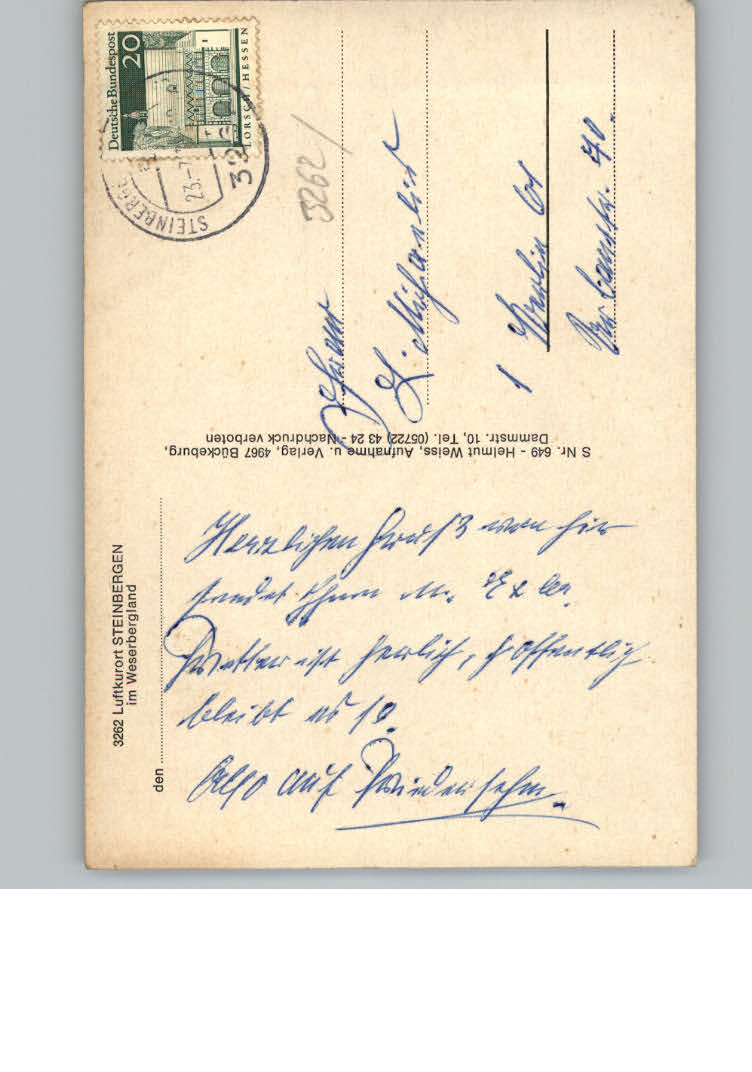 3262 Luftkurort STEINBERGEN
im Weserbergland
den
Herzlichen Gruß von hier
sendet Ihnen
Wetter ist herrlich, hoffentlich
bleibt es so.
Also auf Wiedersehn.
S Nr. 649 - Helmut Weiss, Aufnahme u. Verlag, 4967 Bückeburg,
Dammstr. 10, Tel. (05722) 43 24 - Nachdruck verboten
Deutsche Bundespost
20
LORSCH/HESSEN
STEINBERGE
23.-7
32
3262/
Frau
1 Berlin 61
Urbanstr. 40.